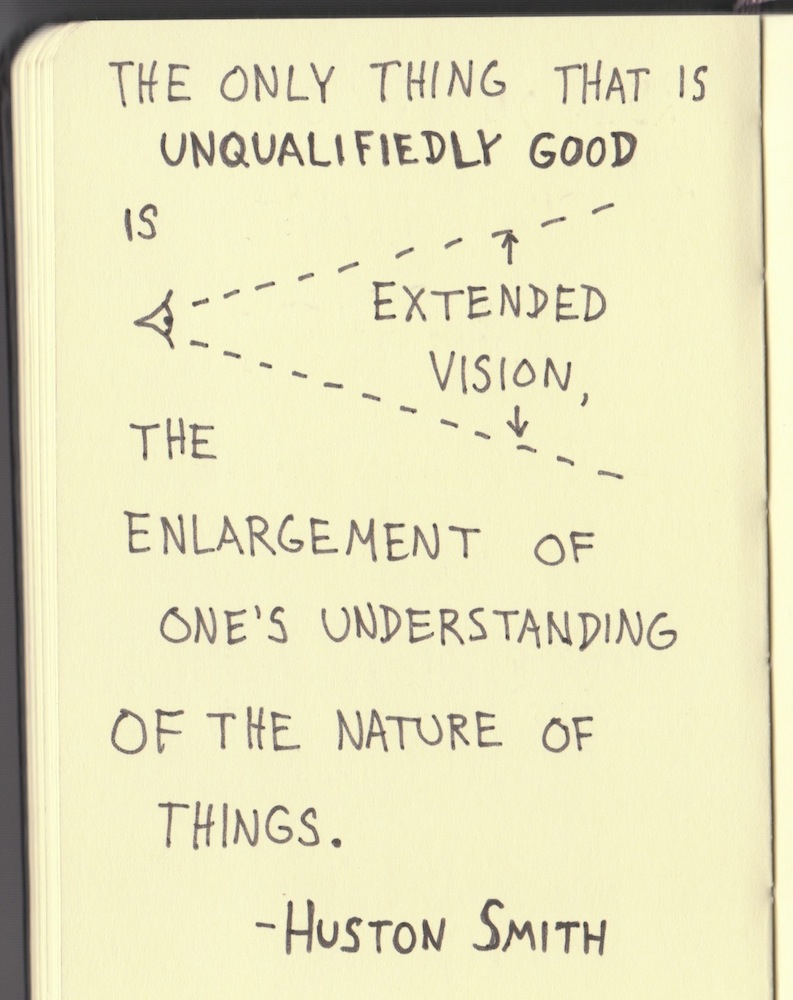 THE ONLY THING THAT IS
UNQUALIFIEDLY GOOD
IS
EXTENDED
VISION,
THE
ENLARGEMENT OF
ONE'S UNDERSTANDING
OF THE NATURE OF
THINGS.
-HUSTON SMITH